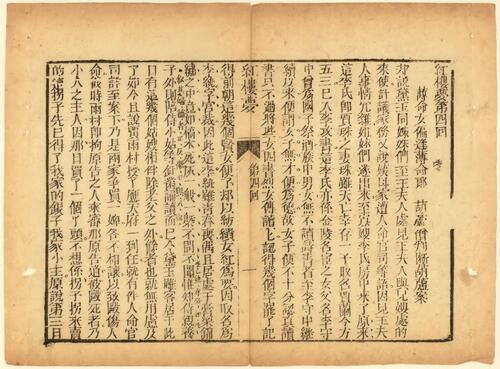 紅樓夢第四回
薄命女偏逢薄命郎 葫蘆僧判斷葫蘆案
却說黛玉同姊妹們至王夫人處見王夫人與兄嫂處的
來使計議家務又說姨母家遭人命官司等語因見王夫
人事情冗雜姊妹們遂出來至寡嫂李氏房中來了原來
這李氏卽賈珠之妻珠雖夭亡幸存一子取名賈蘭今方
五歲已入學攻書這李氏亦係金陵名宦之女父名李守
中曾爲國子祭酒族中男女無不讀詩書者至李守中繼
續以來便謂女子無才便爲德故女子便不十分認真讀
書只不過將些女四書烈女傳讀上認得幾個字罷了記
紅樓夢 第四回 一
得前朝這幾個賢女便了却以紡績女紅爲要因取名爲
李紈字宮裁因此這李紈雖青春喪偶且居處于膏粱錦
繡之中竟如槁木死灰一般一槩不問不聞惟知侍親養
子外則陪侍小姑等針黹誦讀而已今黛玉雖客居于此
日有這幾個姑嫂相伴除老父之外餘者也就無用慮及
了如今且說賈雨村授了應天府一到任就有件人命官
司詳至案下乃是兩家爭買一婢各不相讓以致毆傷人
命彼時雨村卽拘原告之人來審那原告道被毆死者乃
小人之主人因那日買了一個丫頭不想係拐子拐來賣
的這拐子先已得了我家的銀子我家小主原說第三日